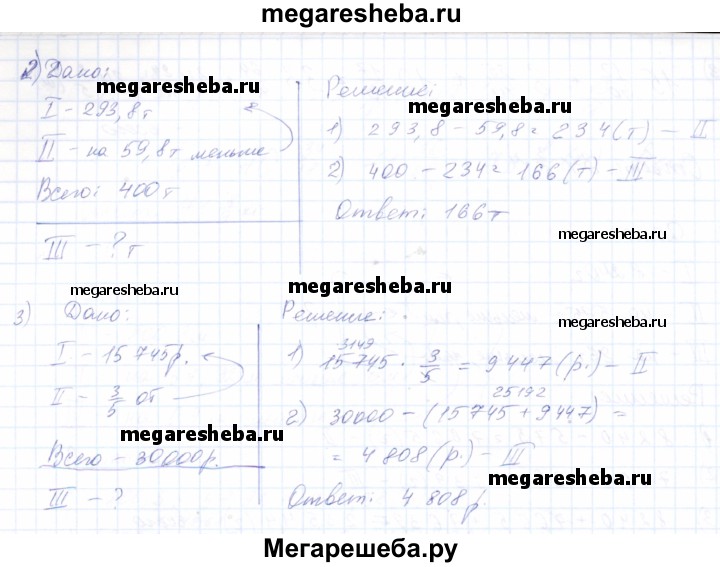 megaresheba.ru
2) Дано:
I - 293,8 т
II - на 59,8 т меньше
Всего: 400 т
III - ? т
Решение:
1) 293,8 - 59,8 = 234 (т) - II
2) 400 - 234 = 166 (т) - III
Ответ: 166 т
megaresheba.ru
megaresheba.ru
megaresheba.ru
megaresheba.ru
megaresheba.ru
megaresheba.ru
3) Дано:
I - 15 745 р.
II - 3/5 от
Всего - 30000 р.
III - ?
Решение:
3149
1) 15745 · 3/5 = 9 447 (р.) - II
25192
2) 30000 - (15 745 + 9 447) =
= 4 808 (р.) - III
Ответ: 4 808 р.
megaresheba.ru
megaresheba.ru
Мегарешеба.ру